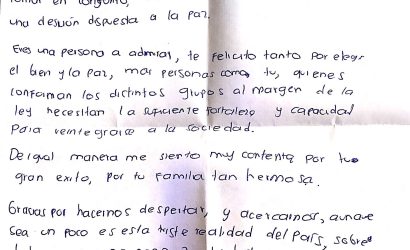 una desición dispuesta a la paz.
Eres una persona a admirar, te felicito tanto por elegir
el bien y la paz, mas personas como tu, quienes
conforman los distintos grupos al margen de la
ley necesitan la suficiente fortaleza y capacidad
para reintegrarse a la sociedad.
De igual manera me siento muy contenta por tu
gran exito, por tu familia tan hermosa.
Gracias por hacernos despertar, y acercarnos, aunque
sea un poco es esta triste realidad del país, sobre